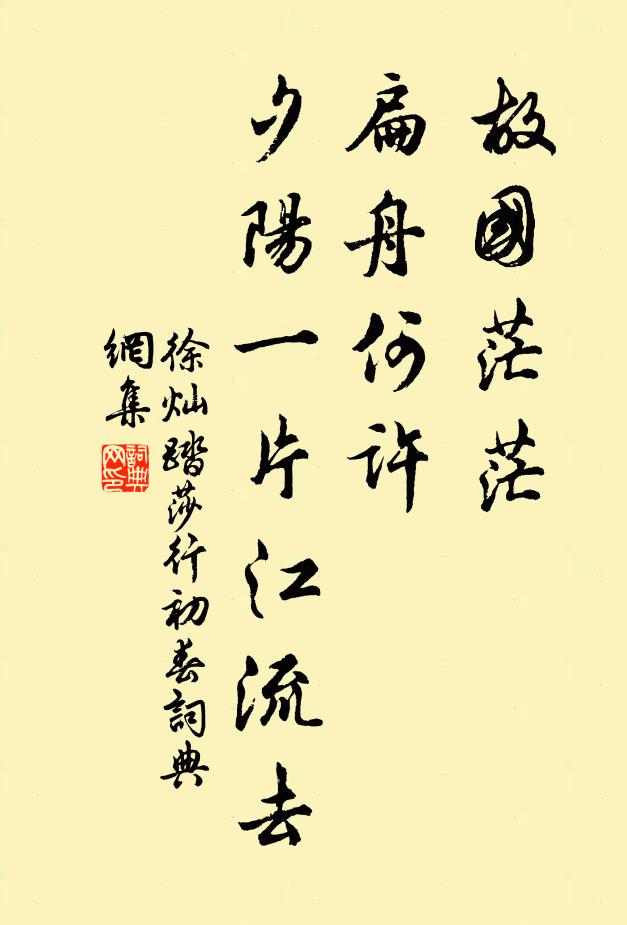 故國茫茫
扁舟何許
夕陽一片江流去
徐灿踏莎行初春詞典
網集
詞典
网印